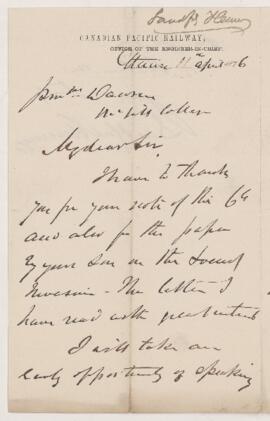 Sandf Fleming
CANADIAN PACIFIC RAILWAY,
OFFICE OF THE ENGINEER-IN-CHIEF.
Ottawa 11th April 1876
Dawson
McGill College
My dear Sir
I have to thank
you for your note of the 6th
and also for the paper
by your Son on the Locust
Invasion - The latter I
have read with great interest
I will take an
early opportunity of speaking